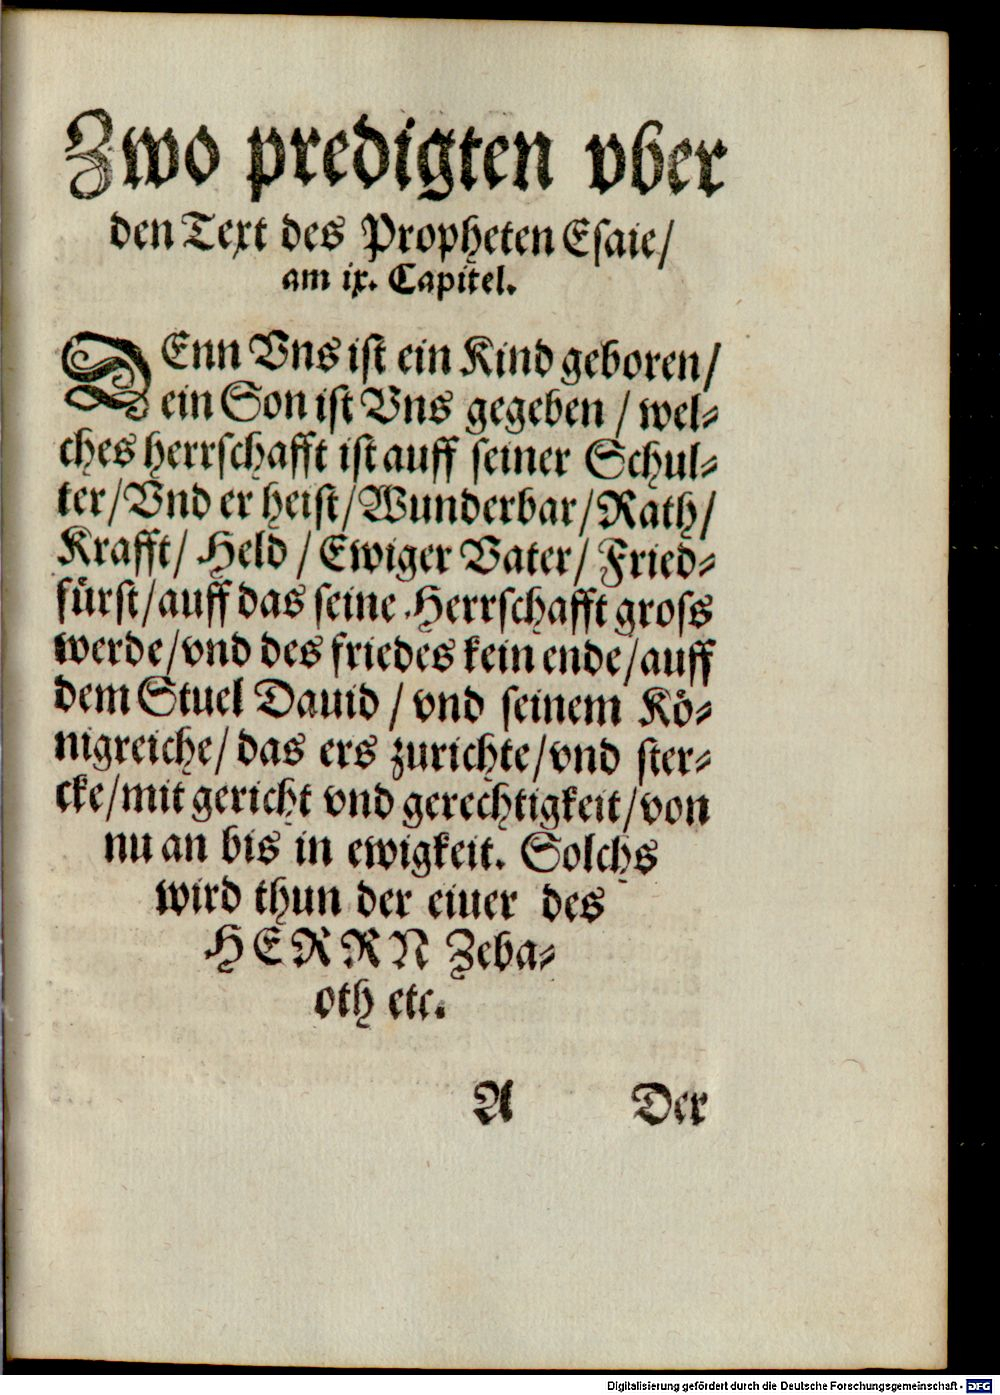 Zwo predigten vber
den Text des Propheten Esaie/
am ix. Capitel.
DEnn Vns ist ein Kind geboren/
ein Son ist Vns gegeben / wel⸗
ches herrschafft ist auff seiner Schul⸗
ter/Vnd er heist/Wunderbar/Rath/
Krafft/ Held / Ewiger Vater/ Fried⸗
fürst/auff das seine Herrschafft gross
werde/vnd des friedes kein ende/auff
dem Stuel Dauid / vnd seinem Kö⸗
nigreiche/ das ers zurichte/vnd ster⸗
cke/mit gericht vnd gerechtigkeit/von
nu an bis in ewigkeit. Solchs
wird thun der eiuer des
HERRN Zeba⸗
oth etc.
A Der
Digitalisierung gefördert durch die Deutsche Forschungsgemeinschaft - DFG